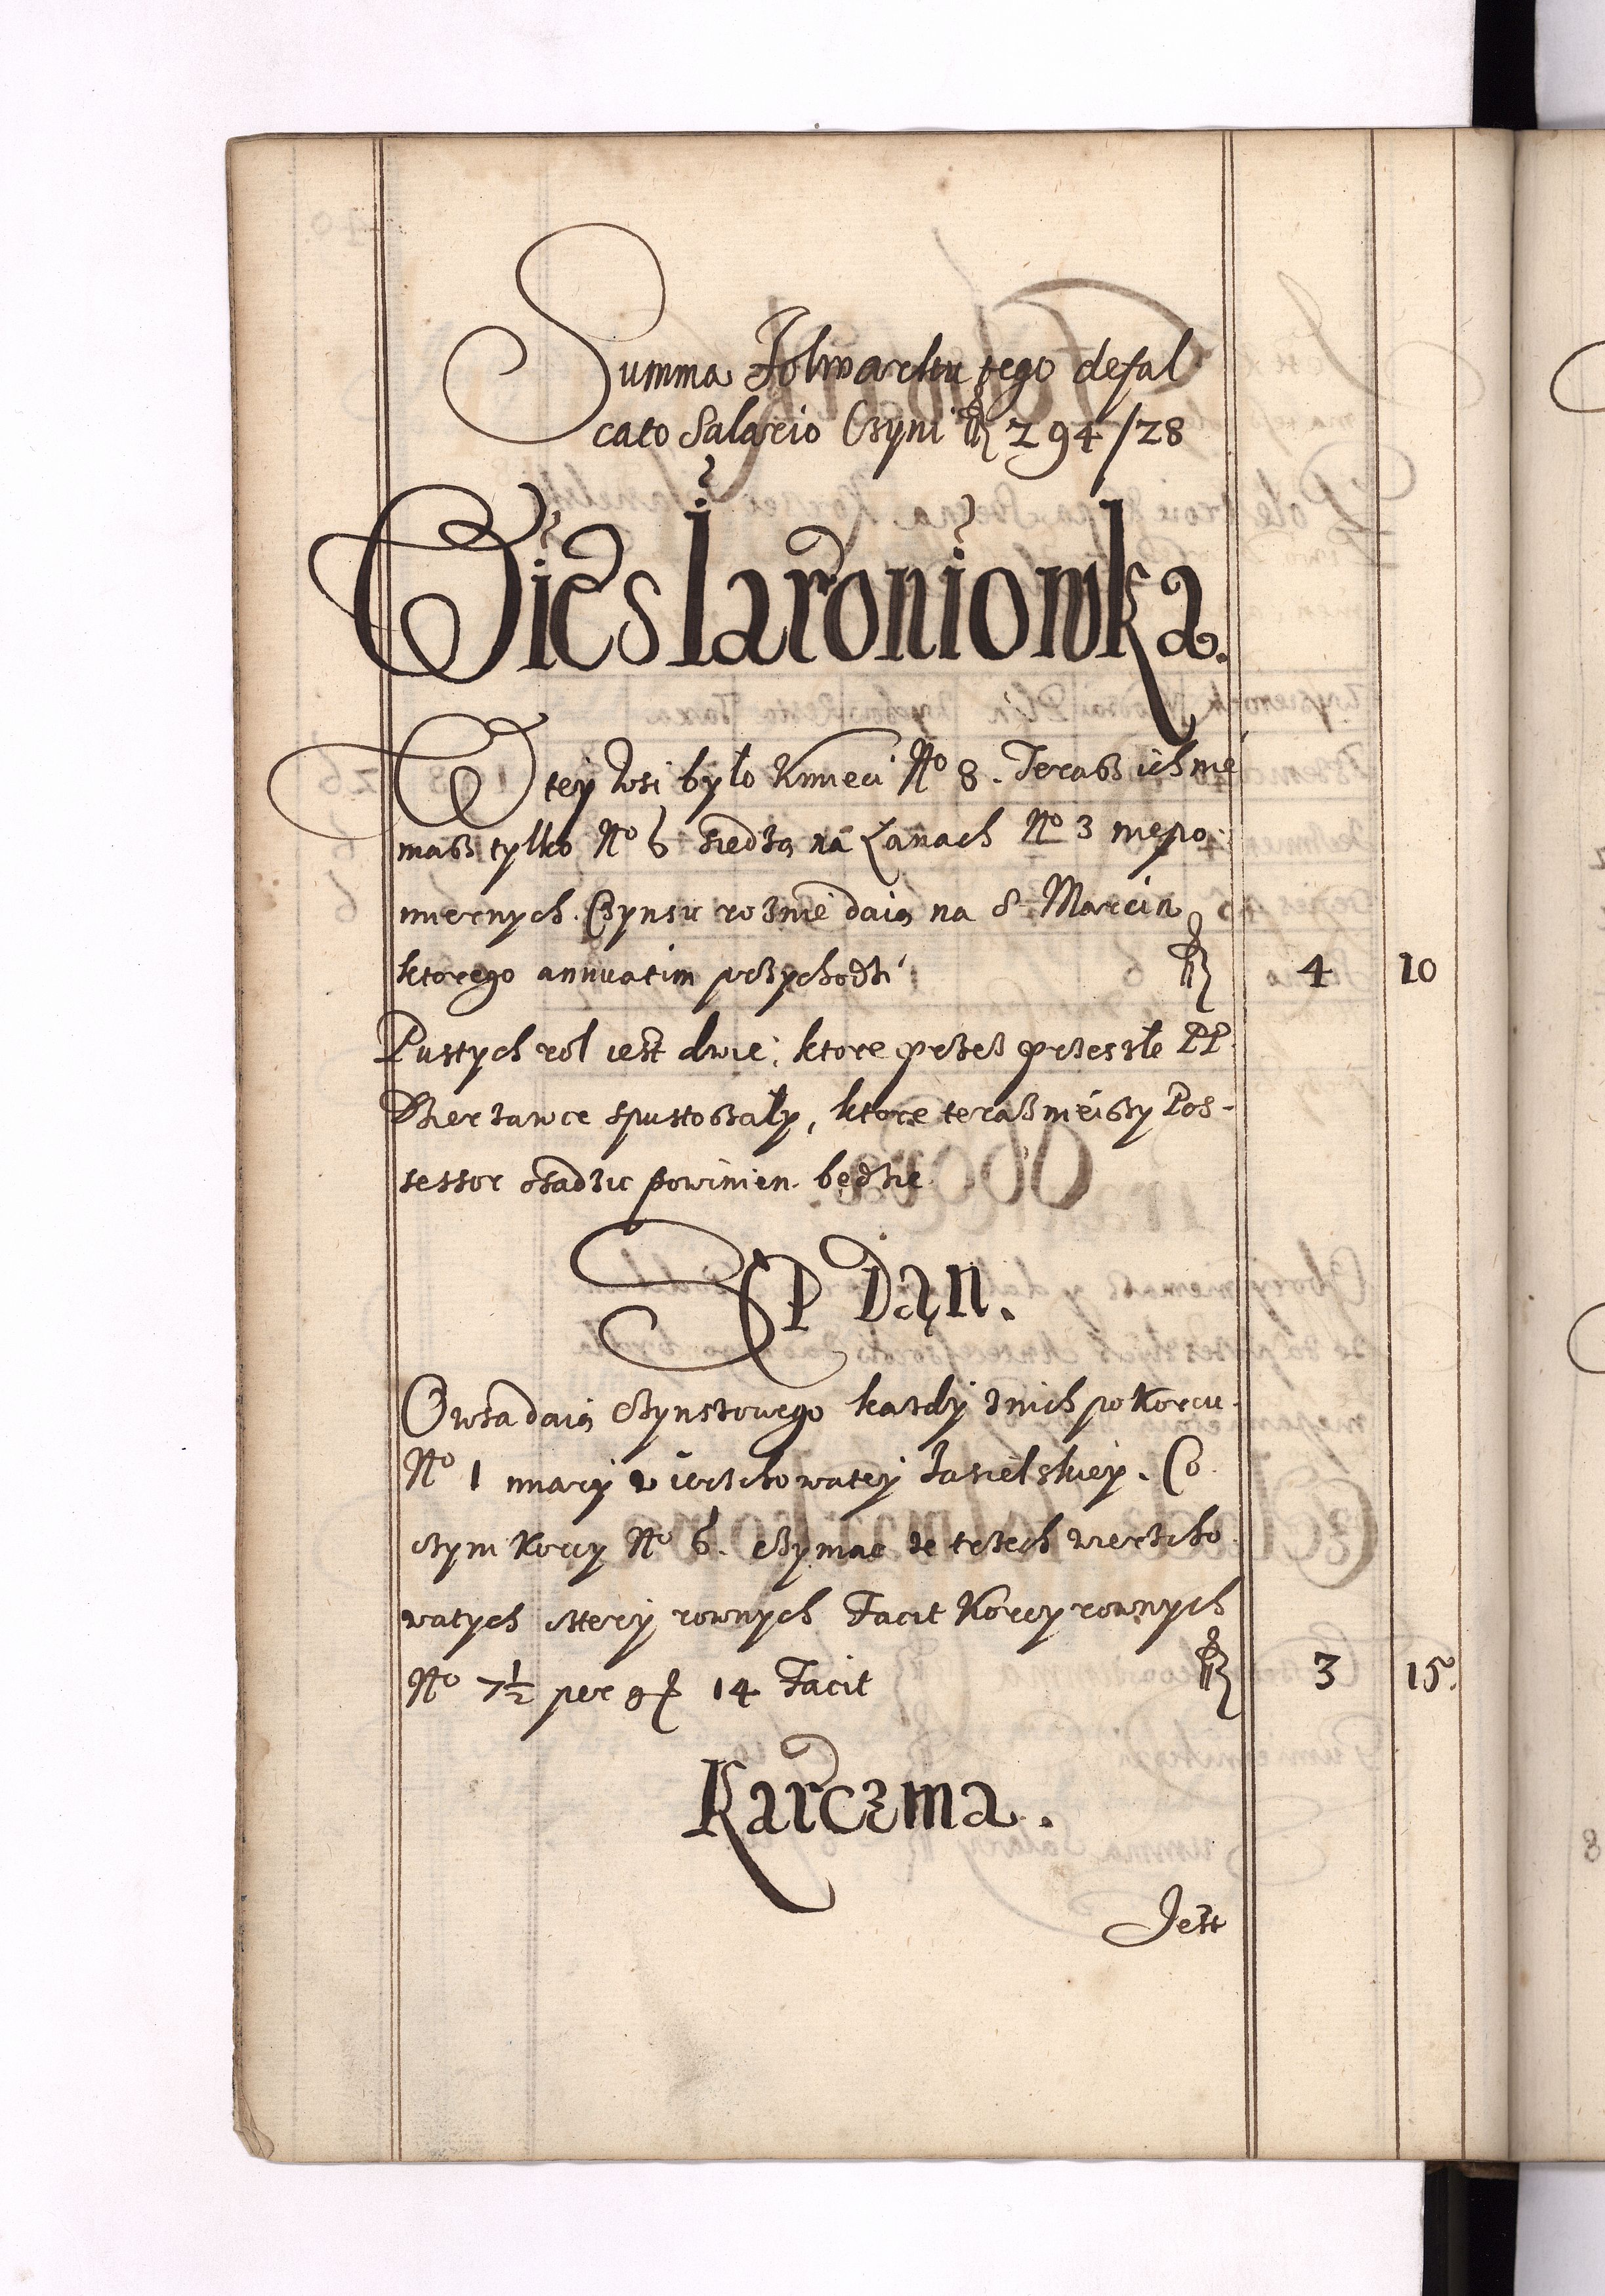 Summa Folwarku tego defal
cato Salario Czyni fl 294/28
Wiesławoniowka.
W tey wsi było Kmieci No 8. Teraß ich nie
maß tylko No 6 siedzą na Łanach No 3 niepo
miernych. Czynsu roznie daią na S. Marcin
ktorego annuatim przychodzi fl 4 10
Pustych rol iest dwie, ktore przez przeszłe PP.
Dzierzawce spustoßały, ktore teraßnieißy Pos-
sessor osadzic powinien będzie
SEP Dąn.
Owsa daią czynszowego kazdy z nich po Korcu.
No 1 miary wierzchowatey Jasielskiey. Co
czyni Korcy No 6. czyniąc ze trzech wierzcho
watych cztery rownych Facit Korcy rownych
No 7½ per gr 14 Facit fl 3 15.
Karczma.
Jest